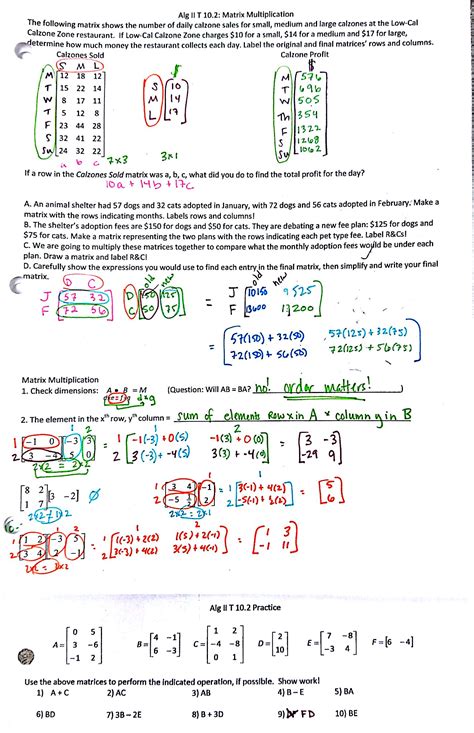 Alg II T 10.2: Matrix Multiplication
The following matrix shows the number of daily calzone sales for small, medium and large calzones at the Low-Cal
Calzone Zone restaurant. If Low-Cal Calzone Zone charges $10 for a small, $14 for a medium and $17 for large,
determine how much money the restaurant collects each day. Label the original and final matrices' rows and columns.
Calzones Sold Calzone Profit
S M L $ $
M 12 18 12 M 576
T 15 22 14 S 10 T 696
W 8 17 11 M 14 W 505
T 5 12 8 L 17 Th 354
F 23 44 28 F 1322
S 32 41 22 S 1268
Su 24 32 22 Su 1062
a b c 7x3 3x1
If a row in the Calzones Sold matrix was a, b, c, what did you do to find the total profit for the day?
10a + 14b + 17c
A. An animal shelter had 57 dogs and 32 cats adopted in January, with 72 dogs and 56 cats adopted in February. Make a
matrix with the rows indicating months. Labels rows and columns!
B. The shelter's adoption fees are $150 for dogs and $50 for cats. They are debating a new fee plan: $125 for dogs and
$75 for cats. Make a matrix representing the two plans with the rows indicating each pet type fee. Label R&Cs!
C. We are going to multiply these matrices together to compare what the monthly adoption fees would be under each
plan. Draw a matrix and label R&C!
D. Carefully show the expressions you would use to find each entry in the final matrix, then simplify and write your final
matrix.
D C old new old new
J 57 32 D 150 125 = J 10150 9525
F 72 56 C 50 75 F 13600 13200
= 57(150) + 32(50) 57(125) + 32(75)
72(150) + 56(50) 72(125) + 56(75)
Matrix Multiplication
1. Check dimensions: A • B = M (Question: Will AB = BA? no! order matters!
dxe = fxg dxg
2. The element in the xth row, yth column = sum of elements Row x in A × column y in B
1 2 1 2
1 -1 0 -3 3 = 1 -1(-3) + 0(5) -1(3) + 0(0) = 3 -3
2 3 -4 5 0 2 3(-3) + -4(5) 3(3) + -4(0) -29 9
2x2 = 2x2
8 2 3 -2 Ø 1 3 4 -1 = 1 3(-1) + 4(2) = 5
1 7 2 -5 2 2
2x2 ≠ 1x2 2x2 = 2x1
1 2 1 2
1 1 2 -3 5 = 1 1(-3) + 2(2) 1(5) + 2(-1) = 1 3
2 3 4 2 -1 2 3(-3) + 4(2) 3(5) + 4(-1) -1 11
2x2 = 2x2
Alg II T 10.2 Practice
0 5 1 2
A= 3 -6 B= 4 -1 C= -4 -8 D= 2 E= 7 -8 F= 6 -4
-1 2 6 -3 0 1 10 -3 4
Use the above matrices to perform the indicated operation, if possible. Show work!
1) A + C 2) AC 3) AB 4) B – E 5) BA
6) BD 7) 3B – 2E 8) B + 3D 9) FD 10) BE